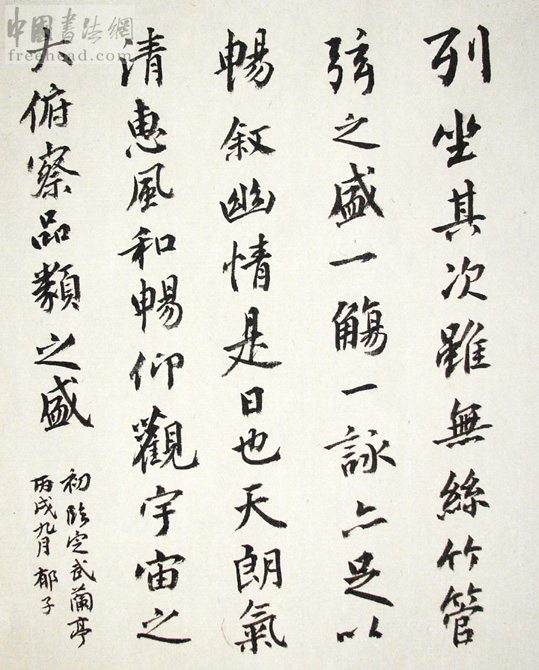 列坐其次雖無絲竹管
弦之盛一觴一詠亦足以
暢敘幽情是日也天朗氣
清惠風和暢仰觀宇宙之
大俯察品類之盛
初臨定武蘭亭
丙戌九月郁子
中国书法網
freehead.com